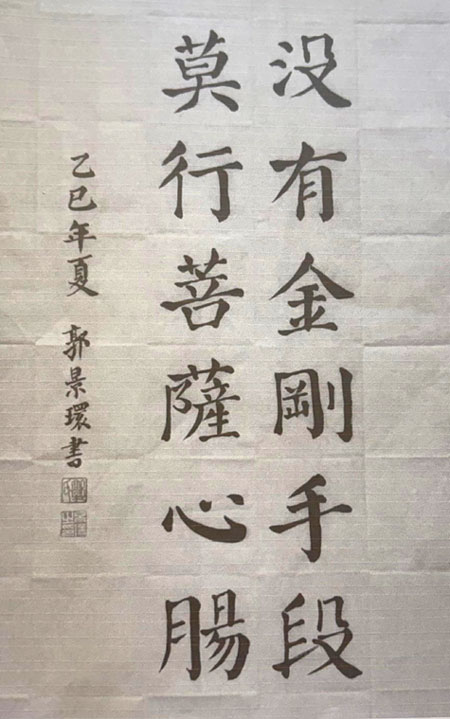 没有金剛手段
莫行菩薩心腸
乙巳年夏 郭景環書